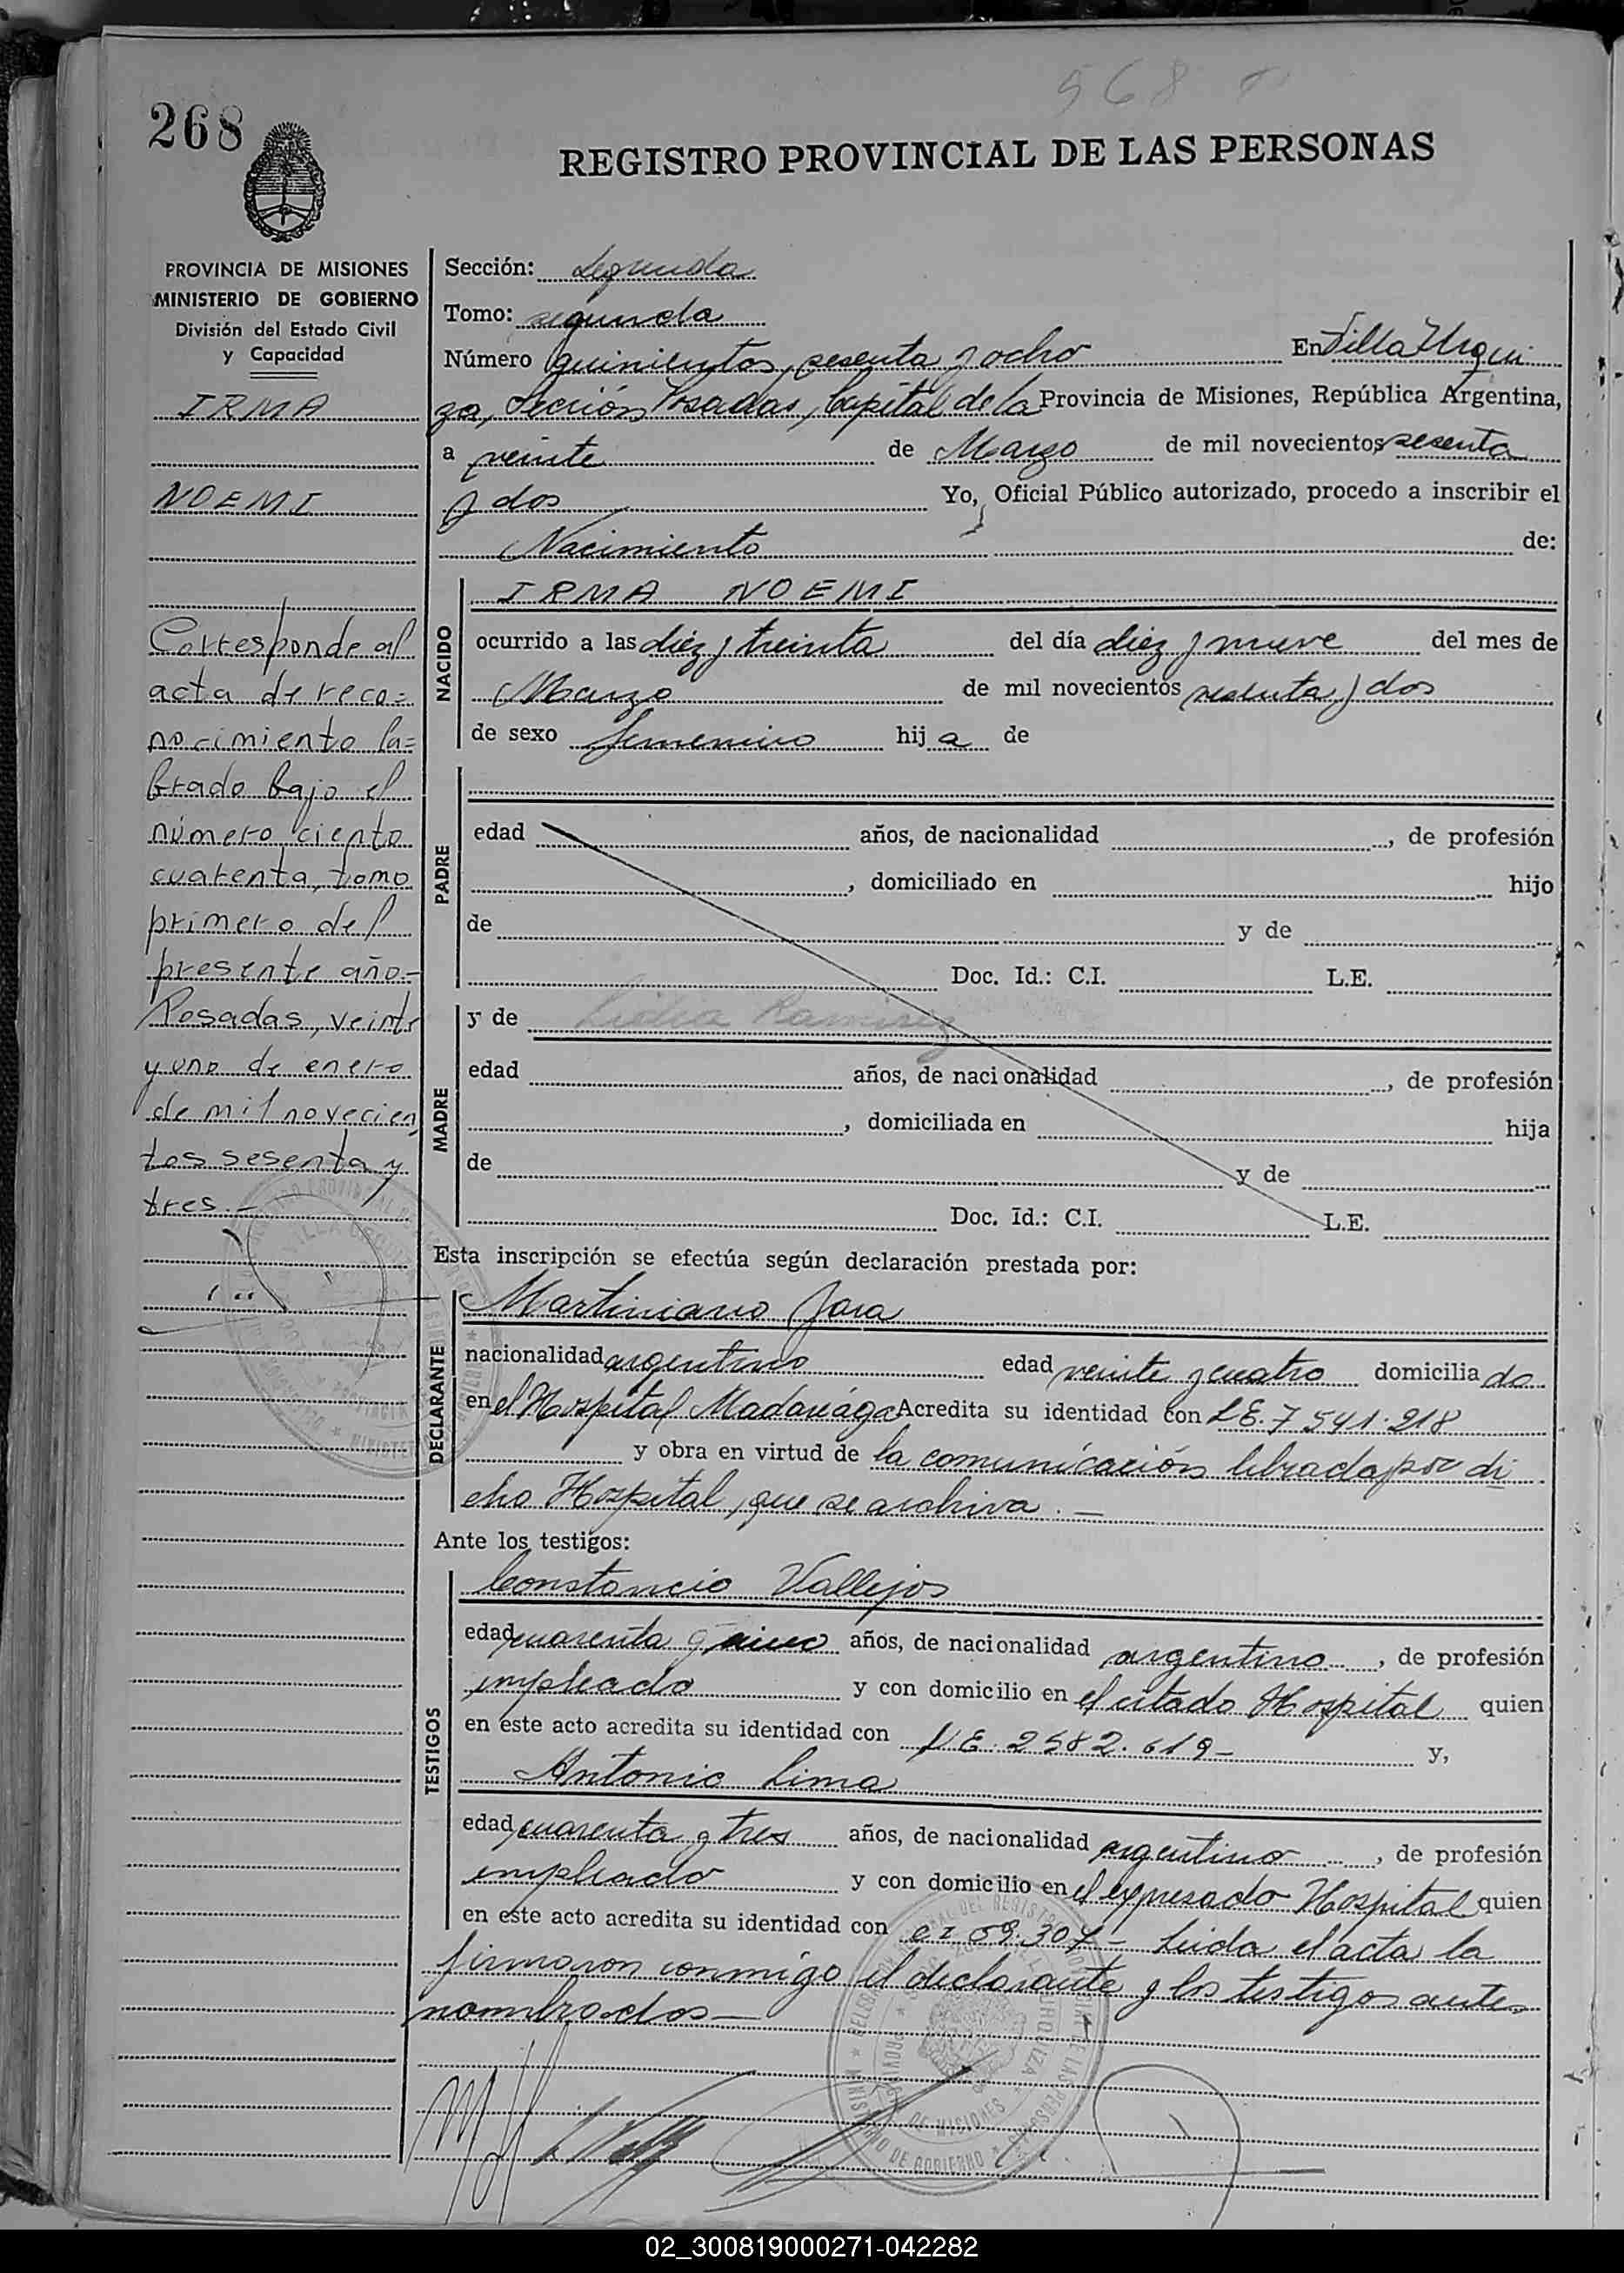 568
268
REGISTRO PROVINCIAL DE LAS PERSONAS
PROVINCIA DE MISIONES
MINISTERIO DE GOBIERNO
División del Estado Civil
y Capacidad
IRMA
NOEMI
Corresponde al
acta de reco=
nocimiento la=
brado bajo el
número ciento
cuarenta, tomo
primero del
presente año.-
Posadas, veinte
y uno de enero
de mil novecien
tos sesenta y
tres.-
Sección: Segunda
Tomo: segunda
Número quinientos, sesenta y ocho En Villa Urqui
za, Sección Posadas, Capital de la Provincia de Misiones, República Argentina,
a veinte de Marzo de mil novecientos sesenta
y dos Yo, Oficial Público autorizado, procedo a inscribir el
Nacimiento de:
NACIDO
IRMA NOEMI
ocurrido a las diéz y treinta del día diez y nueve del mes de
Marzo de mil novecientos sesenta y dos
de sexo femenino hij a de
PADRE
edad años, de nacionalidad , de profesión
, domiciliado en hijo
de y de
Doc. Id.: C.I. L.E.
MADRE
y de Lidia Ramirez
edad años, de nacionalidad , de profesión
, domiciliada en hija
de y de
Doc. Id.: C.I. L.E.
Esta inscripción se efectúa según declaración prestada por:
DECLARANTE
Martiniano Jara
nacionalidad argentino edad veinte y cuatro domicilia do
en el Hospital Madariága Acredita su identidad con L.E. 7541.218
y obra en virtud de la comunicación librada por di
cho Hospital, que se archiva.—
Ante los testigos:
TESTIGOS
Constancio Vallejos
edad cuarenta y años, de nacionalidad argentino, de profesión
empleado y con domicilio en el citado Hospital quien
en este acto acredita su identidad con L.E. 2582.619- y,
Antonio Lima
edad cuarenta y tres años, de nacionalidad argentino, de profesión
empleado y con domicilio en el expresado Hospital quien
en este acto acredita su identidad con Leida el acta la
firmaron conmigo el declarante y los testigos antes
nombrados—
02_300819000271-042282